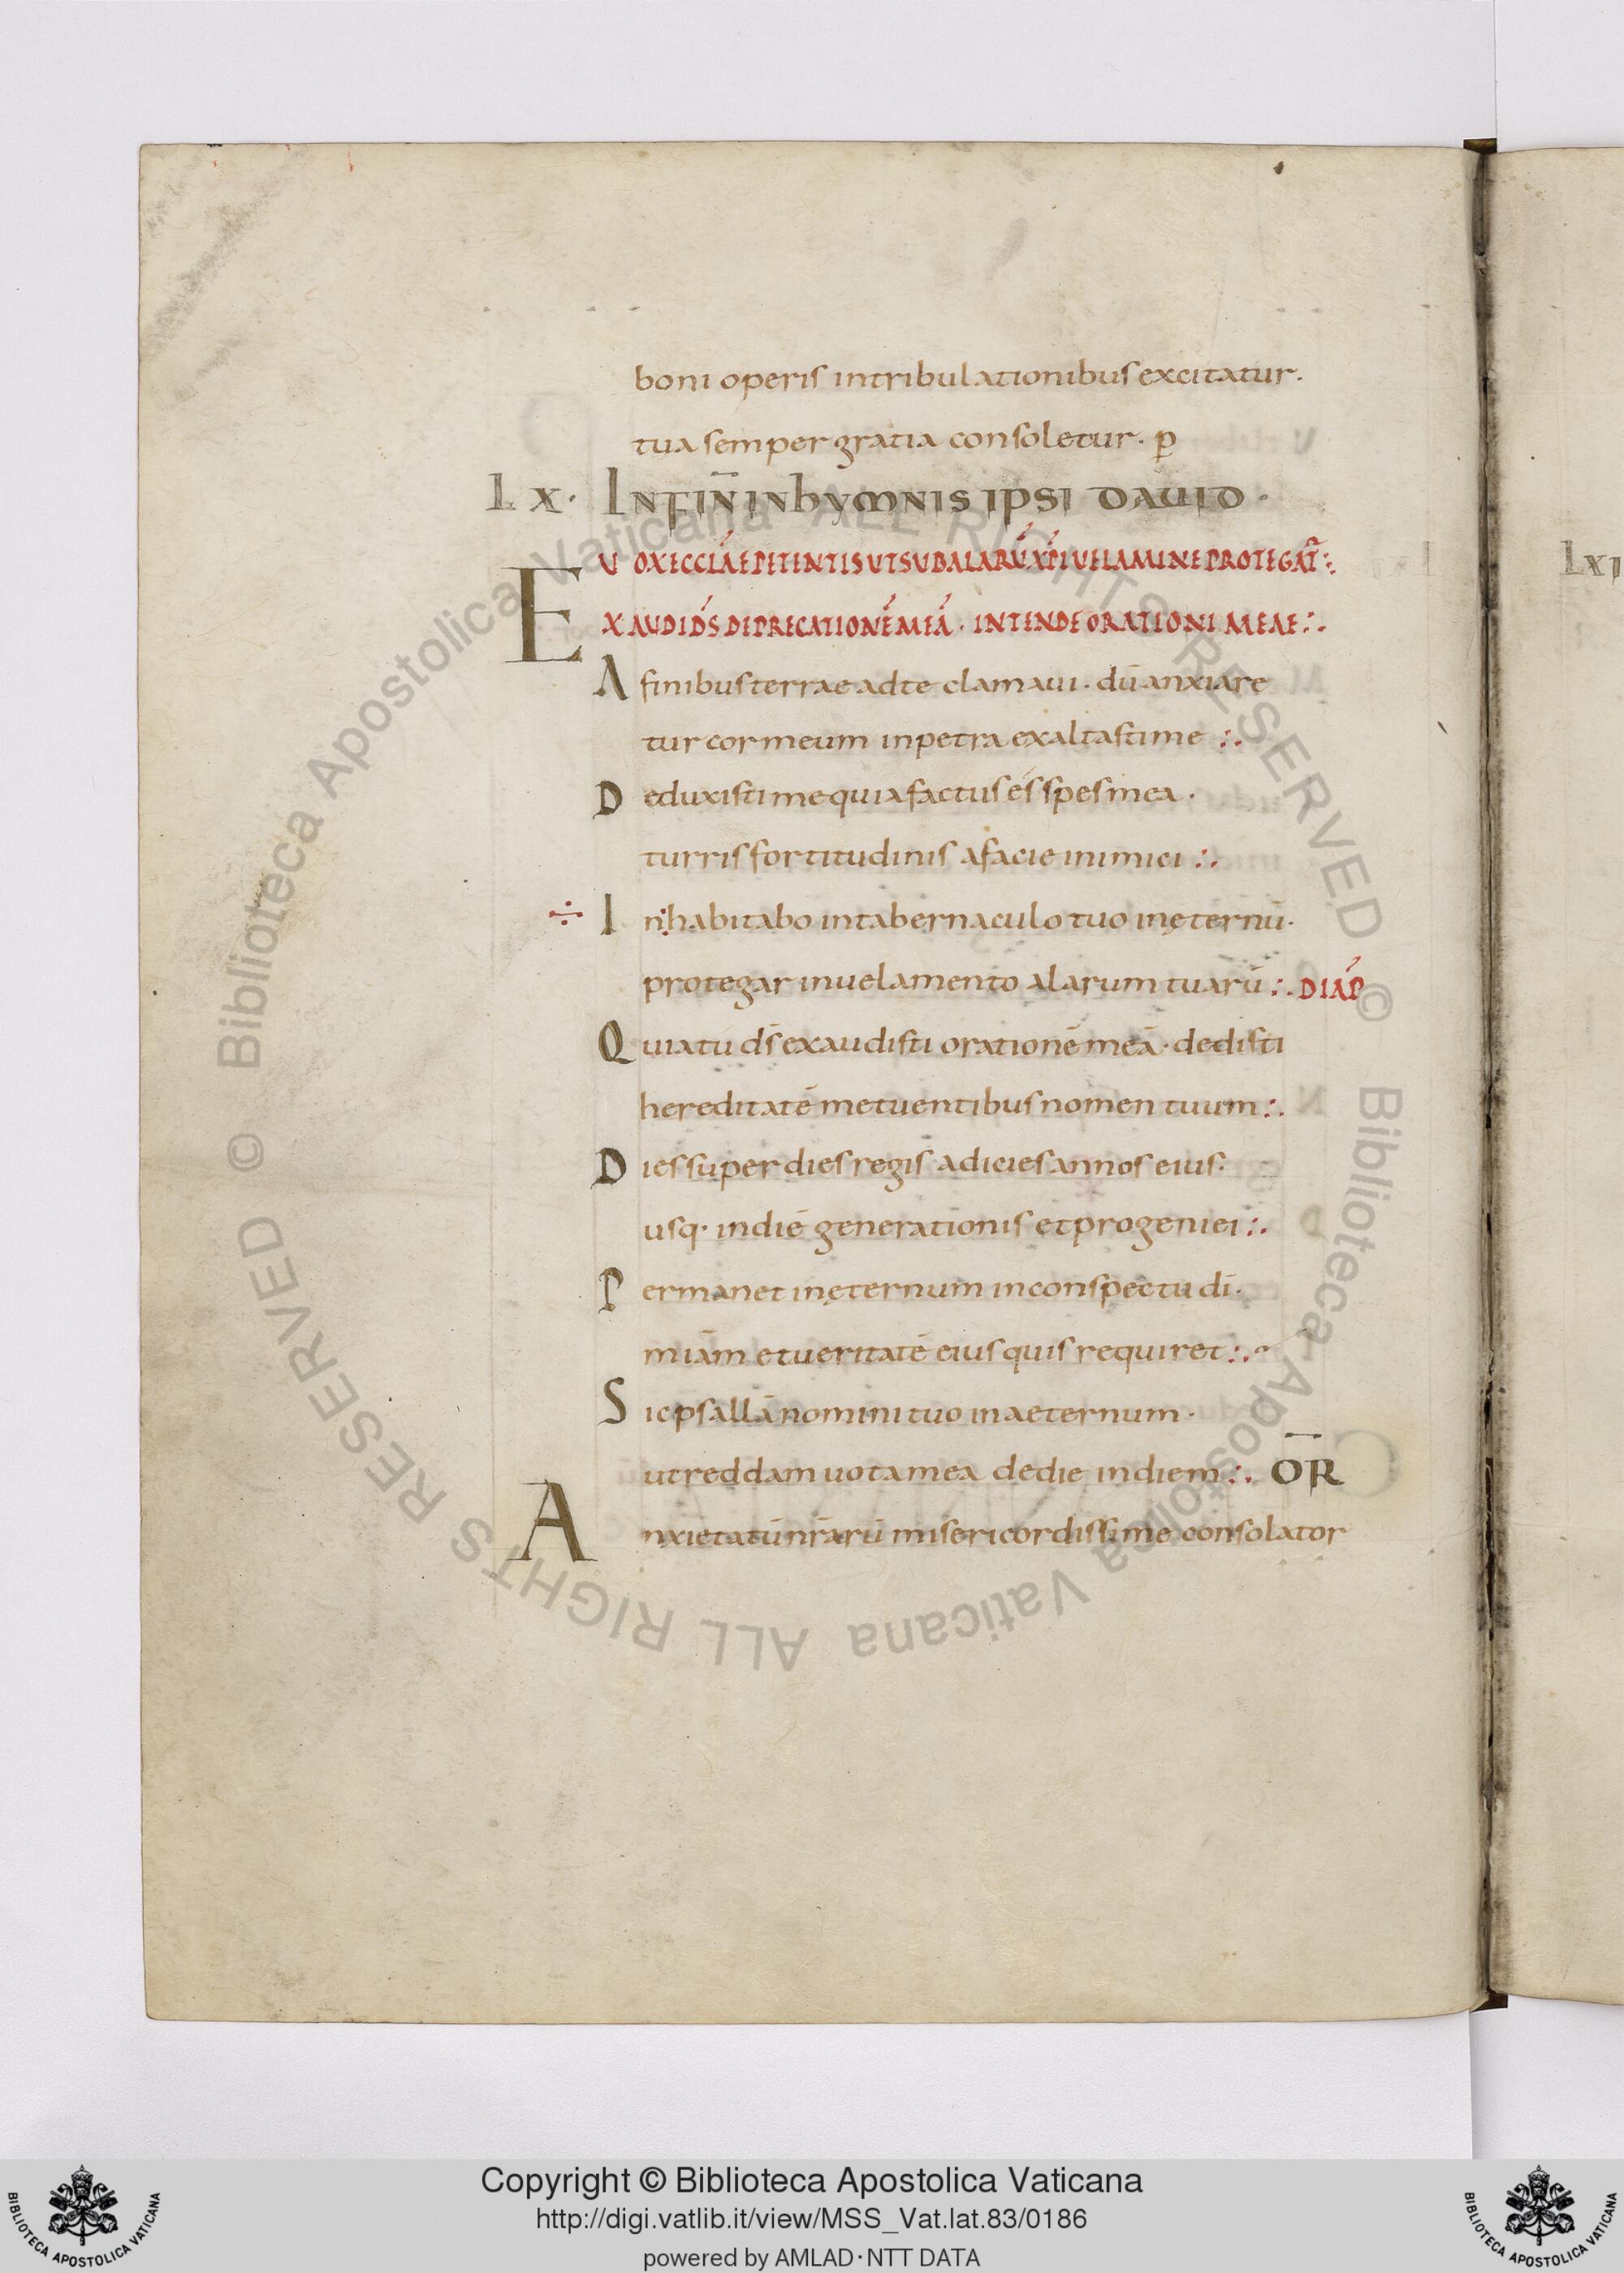 boni operis intribulationibus excitatur.
tua semper gratia consoletur. p̄
lx. INFIN̄ IN hymNIS IPSI DAUID.
UOX ECCLÁE PETENTIS UT SUB ALARŪ XP̄I UELAMINE PROTEGAT̄:.
EXAUDI DS̄ DEPRECATIONĒ MEĀ. INTENDE ORATIONI MEAE:.
A finibus terrae ad te clamaui. dū anxiare
tur cor meum in petra exaltasti me :.
Deduxisti me quia factus és spes mea.
turris fortitudinis a facie inimici :.
÷ In:habitabo in tabernaculo tuo in ęternū.
protegar in uelamento alarum tuarū :. DIÁP
Quia tu ds̄ exaudisti orationē meā. dedisti
hereditatē metuentibus nomen tuum :.
Dies super dies regis adicies annos eius.
usq. in diē generationis et progeniei :.
Permanet in ęternum in conspectu dī.
mīam et ueritatē eius quis requiret :.
Sic psallā nomini tuo in aeternum.
ut reddam uota mea de die in diem :. OR̄
Anxietatū nr̄arū misericordissime consolator
lxi
Copyright © Biblioteca Apostolica Vaticana
http://digi.vatlib.it/view/MSS_Vat.lat.83/0186
powered by AMLAD·NTT DATA
BIBLIOTECA APOSTOLICA VATICANA
BIBLIOTECA APOSTOLICA VATICANA
© Biblioteca Apostolica Vaticana ALL RIGHTS RESERVED © Biblioteca Apostolica Vaticana ALL RIGHTS RESERVED